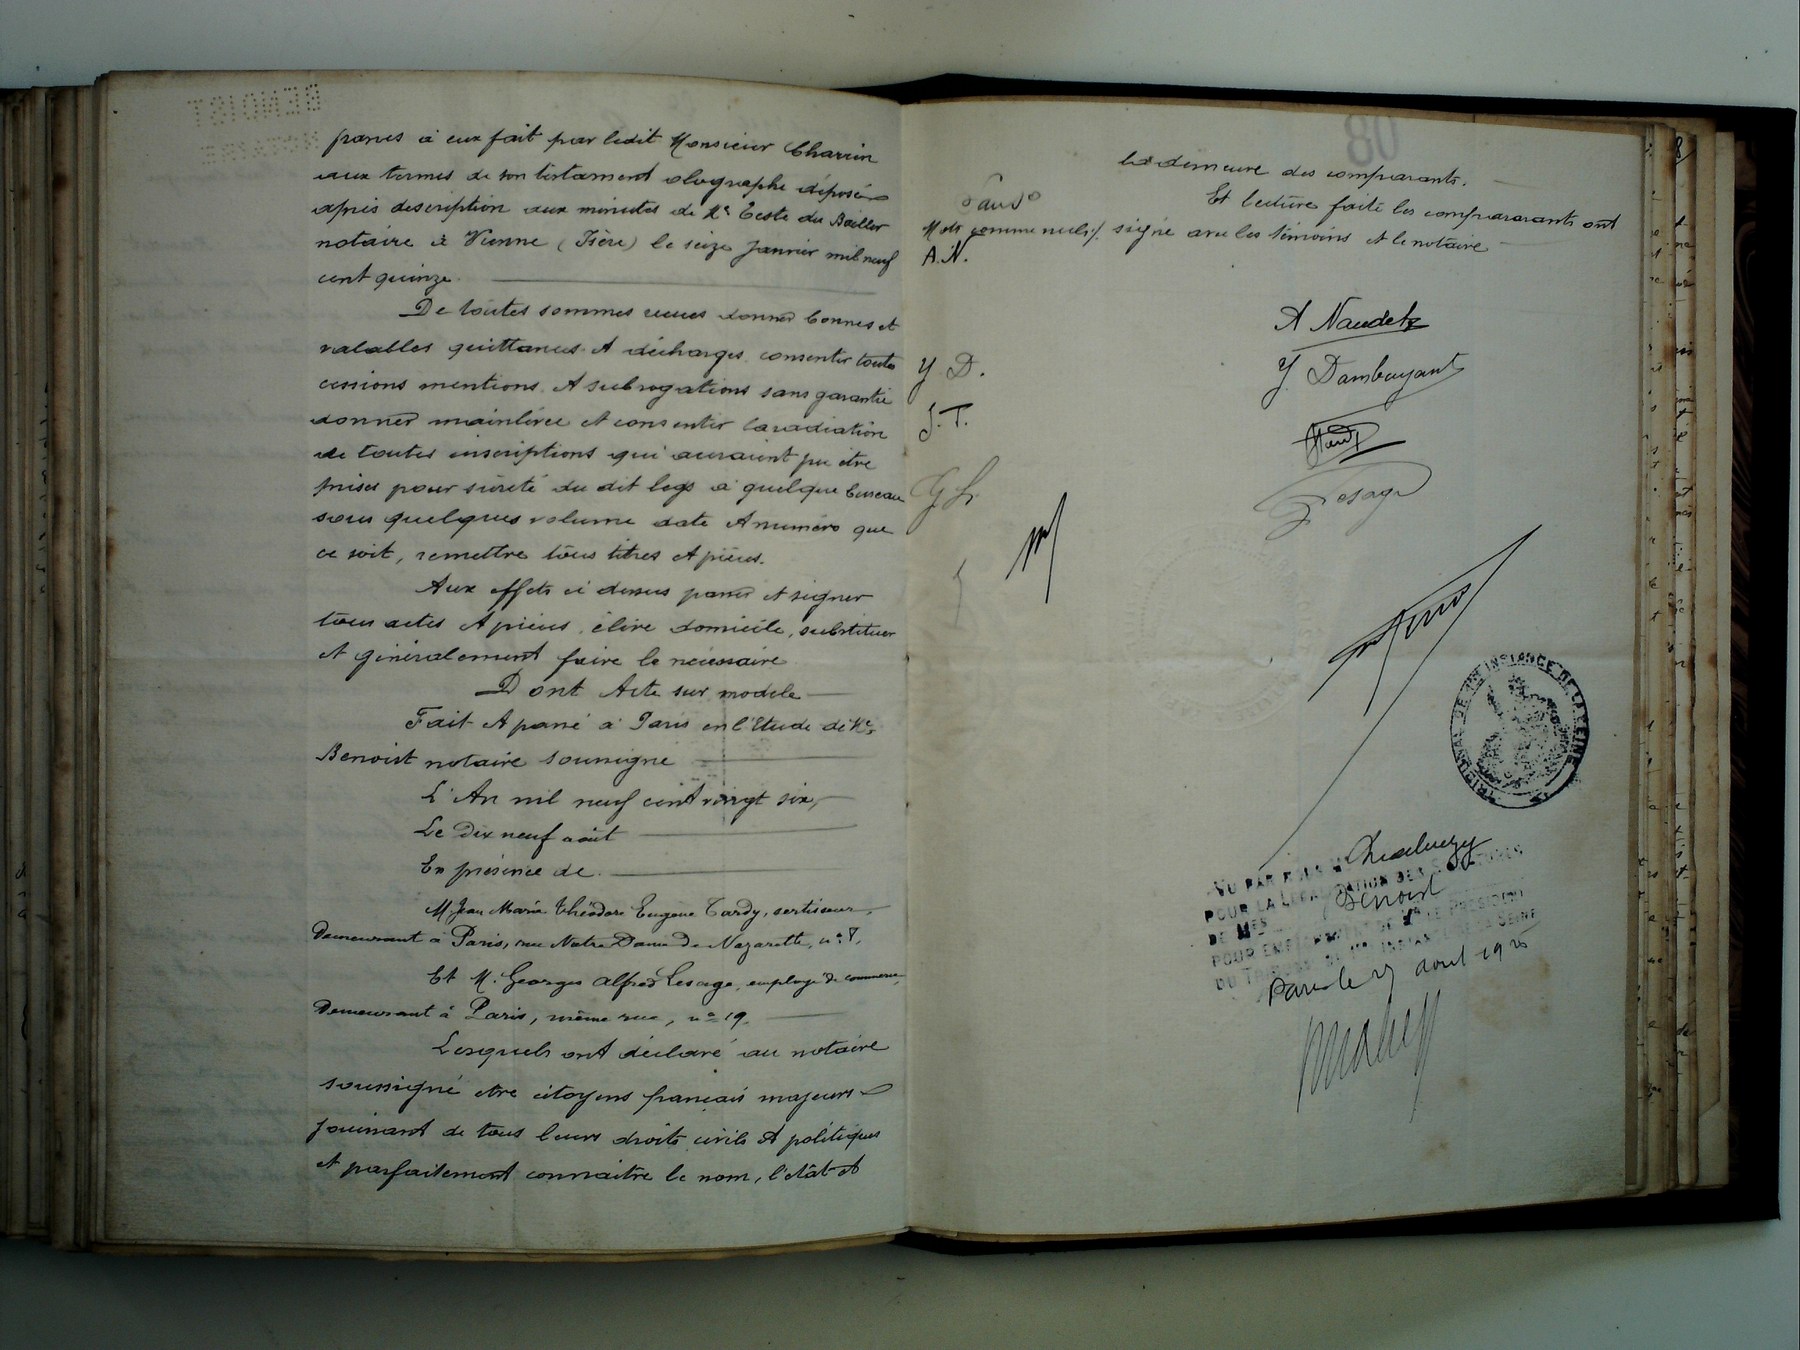 BENOIST
NOTAIRE
francs à eux fait par ledit Monsieur Charvin
aux termes de son testament olographe déposé
après description aux minutes de Me Teste du Bailler
notaire à Vienne (Isère) le seize Janvier mil neuf
cent quinze.
De toutes sommes reçues donner bonnes et
valables quittances et décharges consentir toutes
cessions mentions et subrogations sans garantie
donner mainlevée et consentir la radiation
de toutes inscriptions qui auraient pu être
prises pour sûreté du dit legs à quelque bureau
sous quelques volume date et numéro que
ce soit, remettre tous titres et pièces.
Aux effets ci dessus passer et signer
tous actes et pièces, élire domicile, substituer
et généralement faire le nécessaire
Dont Acte sur modèle
Fait et passé à Paris en l'Etude de Me
Benoist notaire soussigné
L'An mil neuf cent vingt six,
Le Dix neuf août
En présence de.
M. Jean Marie Théodore Eugène Tardy, sertisseur,
Demeurant à Paris, rue Notre Dame de Nazareth, n° 8.
Et M. Georges Alfred Lesage, employé de commerce,
Demeurant à Paris, même rue, n° 19.
Lesquels ont déclaré au notaire
soussigné être citoyens français majeurs
jouissant de tous leurs droits civils et politiques
et parfaitement connaître le nom, l'état et
80
la demeure des comparants.
Et lecture faite les compararants ont
Mots comme nuls signé avec les témoins et le notaire
A.N.
A Naudet
Y. D.
Y. Dambuyant
J. T.
G L.
Lesage
TRIBUNAL DE 1RE INSTANCE DE LA SEINE
VU PAR NOUS M
POUR LA LÉGALISATION DES SIGNATURES
DE MES Benoist
POUR EMPÊCHEMENT DE MR LE PRÉSIDENT
DU TRIBUNAL DE 1RE INSTANCE DE LA SEINE
Paris le 27 aout 1926